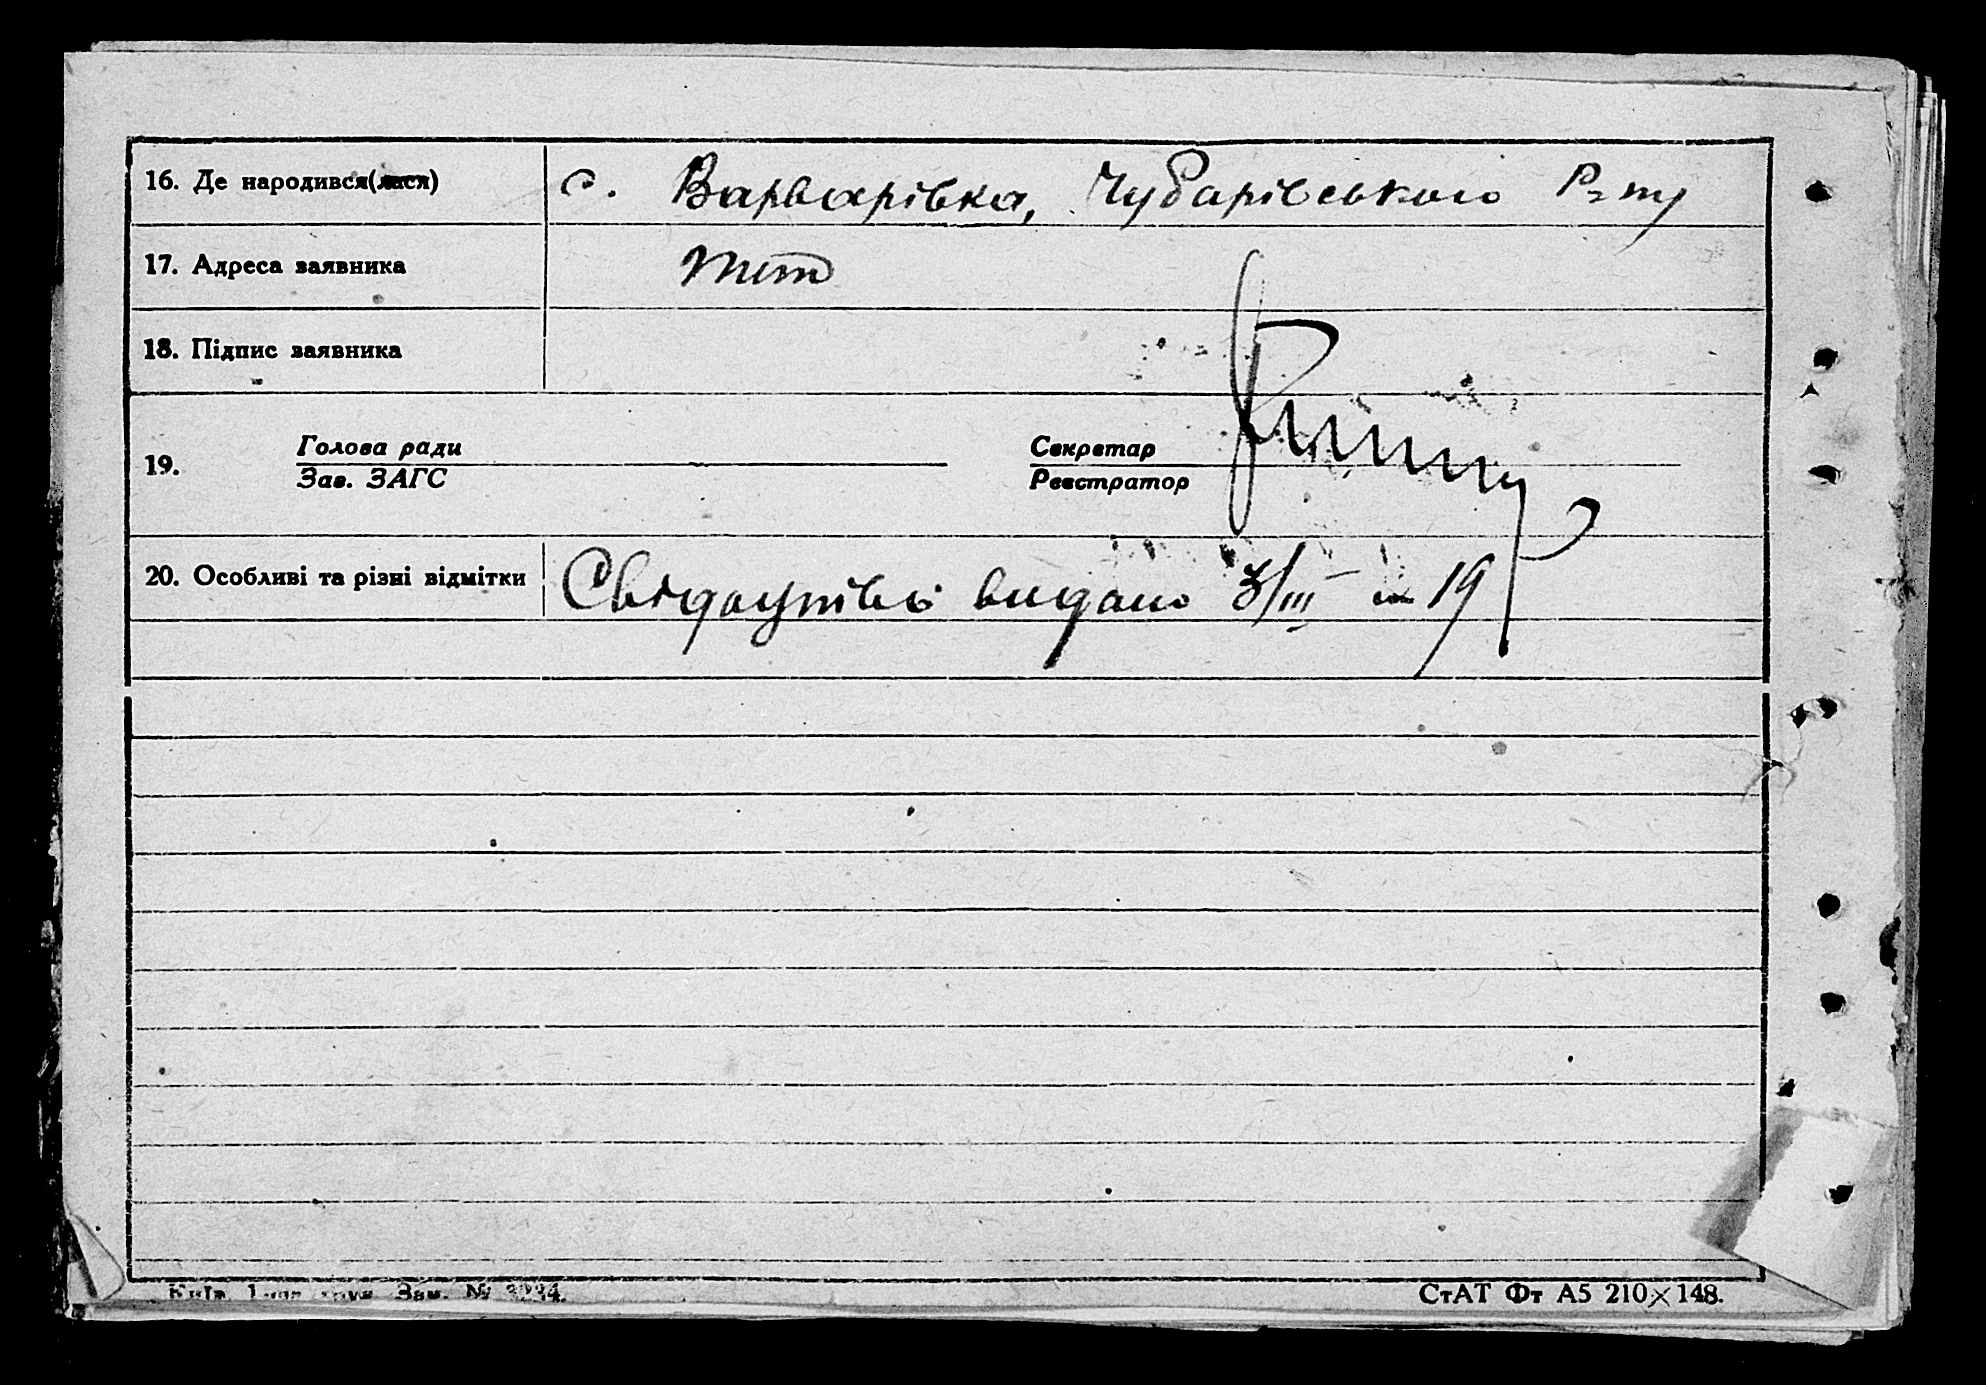 16. Де народився(лася) с. Варварівка, Чубарівського Р-ну
17. Адреса заявника тет
18. Підпис заявника
19. Голова ради Секретар
Зав. ЗАГС Реєстратор
20. Особливі та різні відмітки видано 3/III № 19
Зам. № СтАТ Фт А5 210×148.